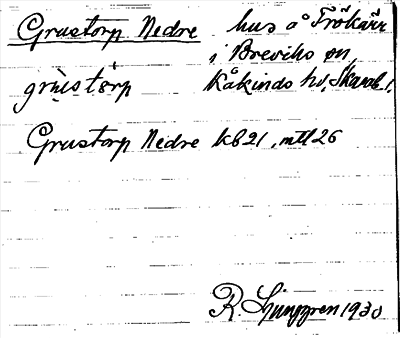 Grustorp Nedre hus å Frökärr
i Breviks sn,
grùstơrp Kåkinds hd, Skarab. l.
Grustorp Nedre kb 21, mtl 26
R. Ljunggren 1930